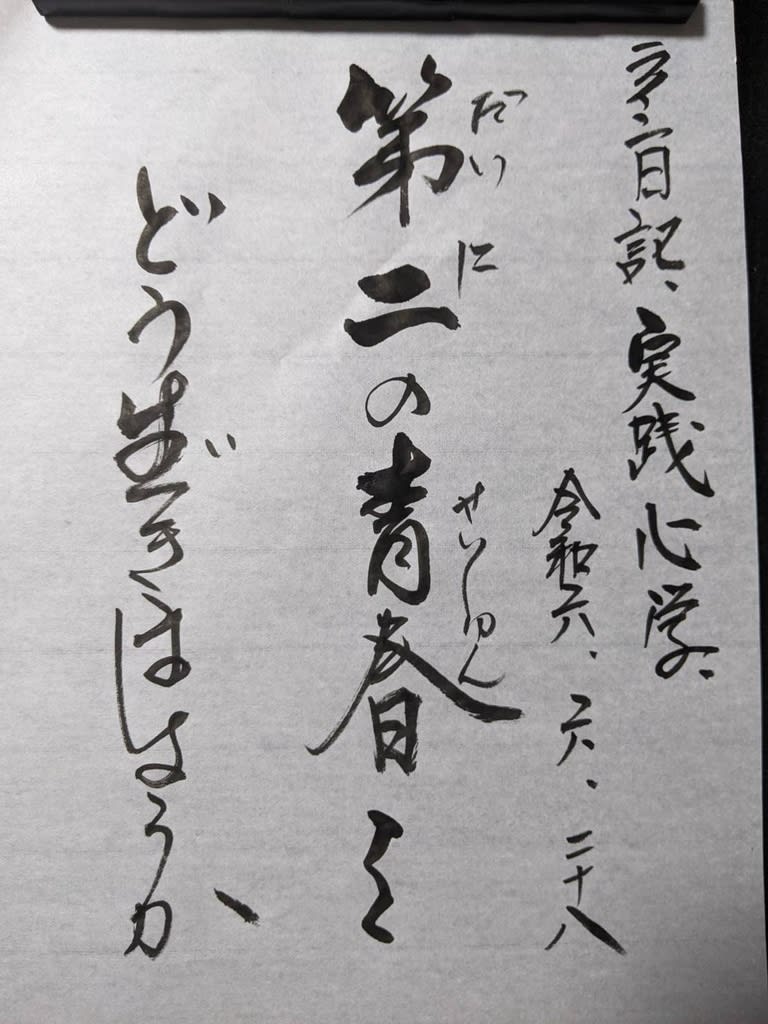 日記、実践心学、
令和六、六、二十八
だい に せいしゅん
第二の青春を
どう生きましょうか、
い